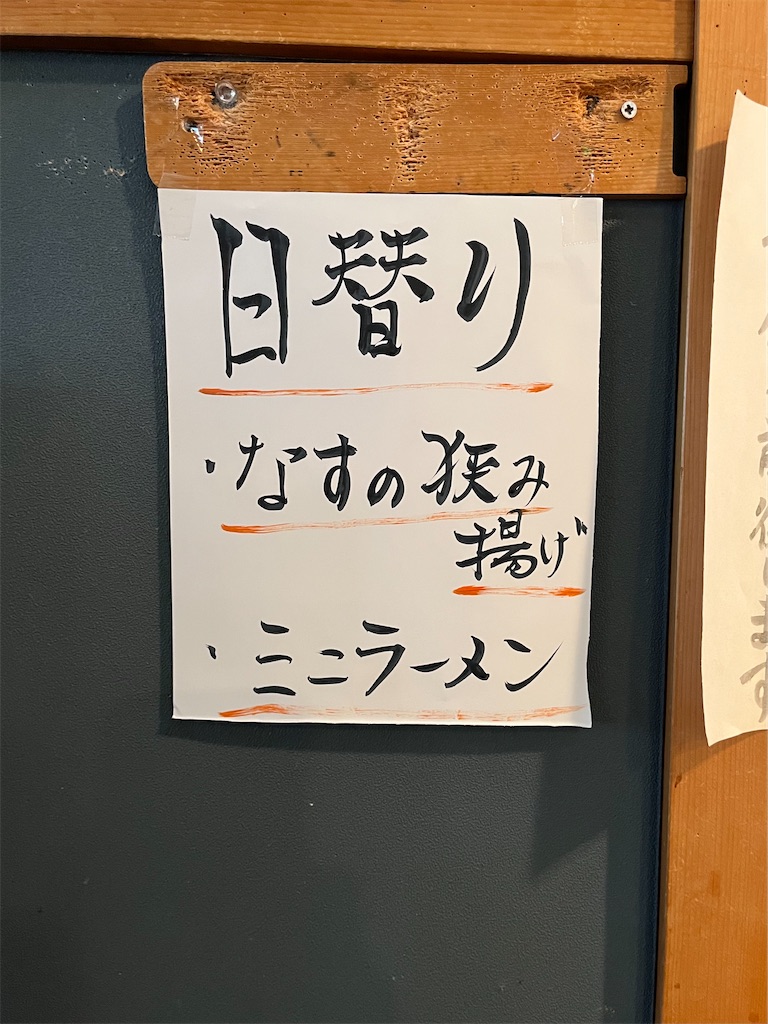 日替り
・なすの狭み
揚げ
・ミニラーメン